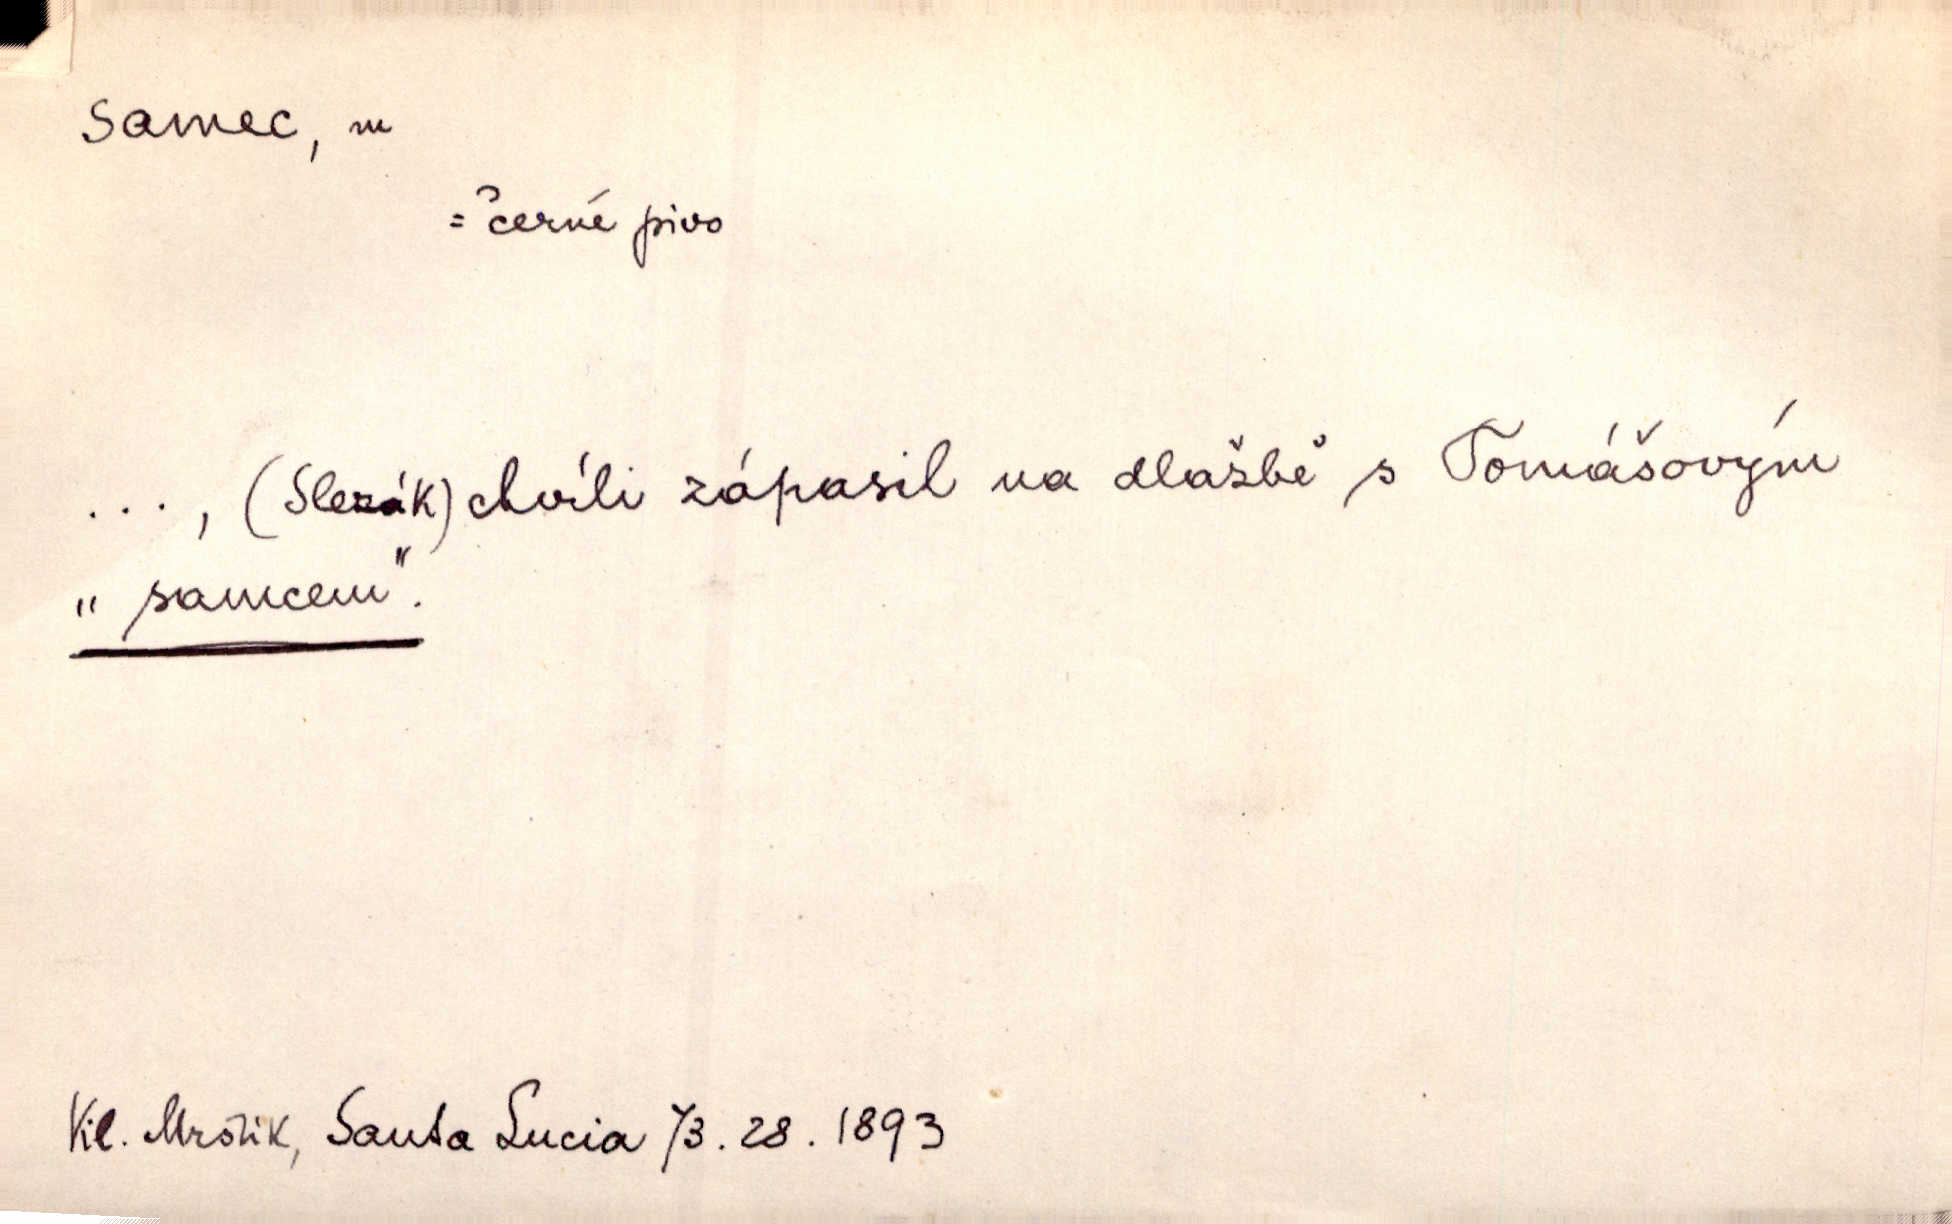 Samec, m
= černé pivo
..., (Slezák) chvíli zápasil na dlažbě s Tomášovým
„samcem".
Vil. Mrštík, Santa Lucia 73. 28. 1893